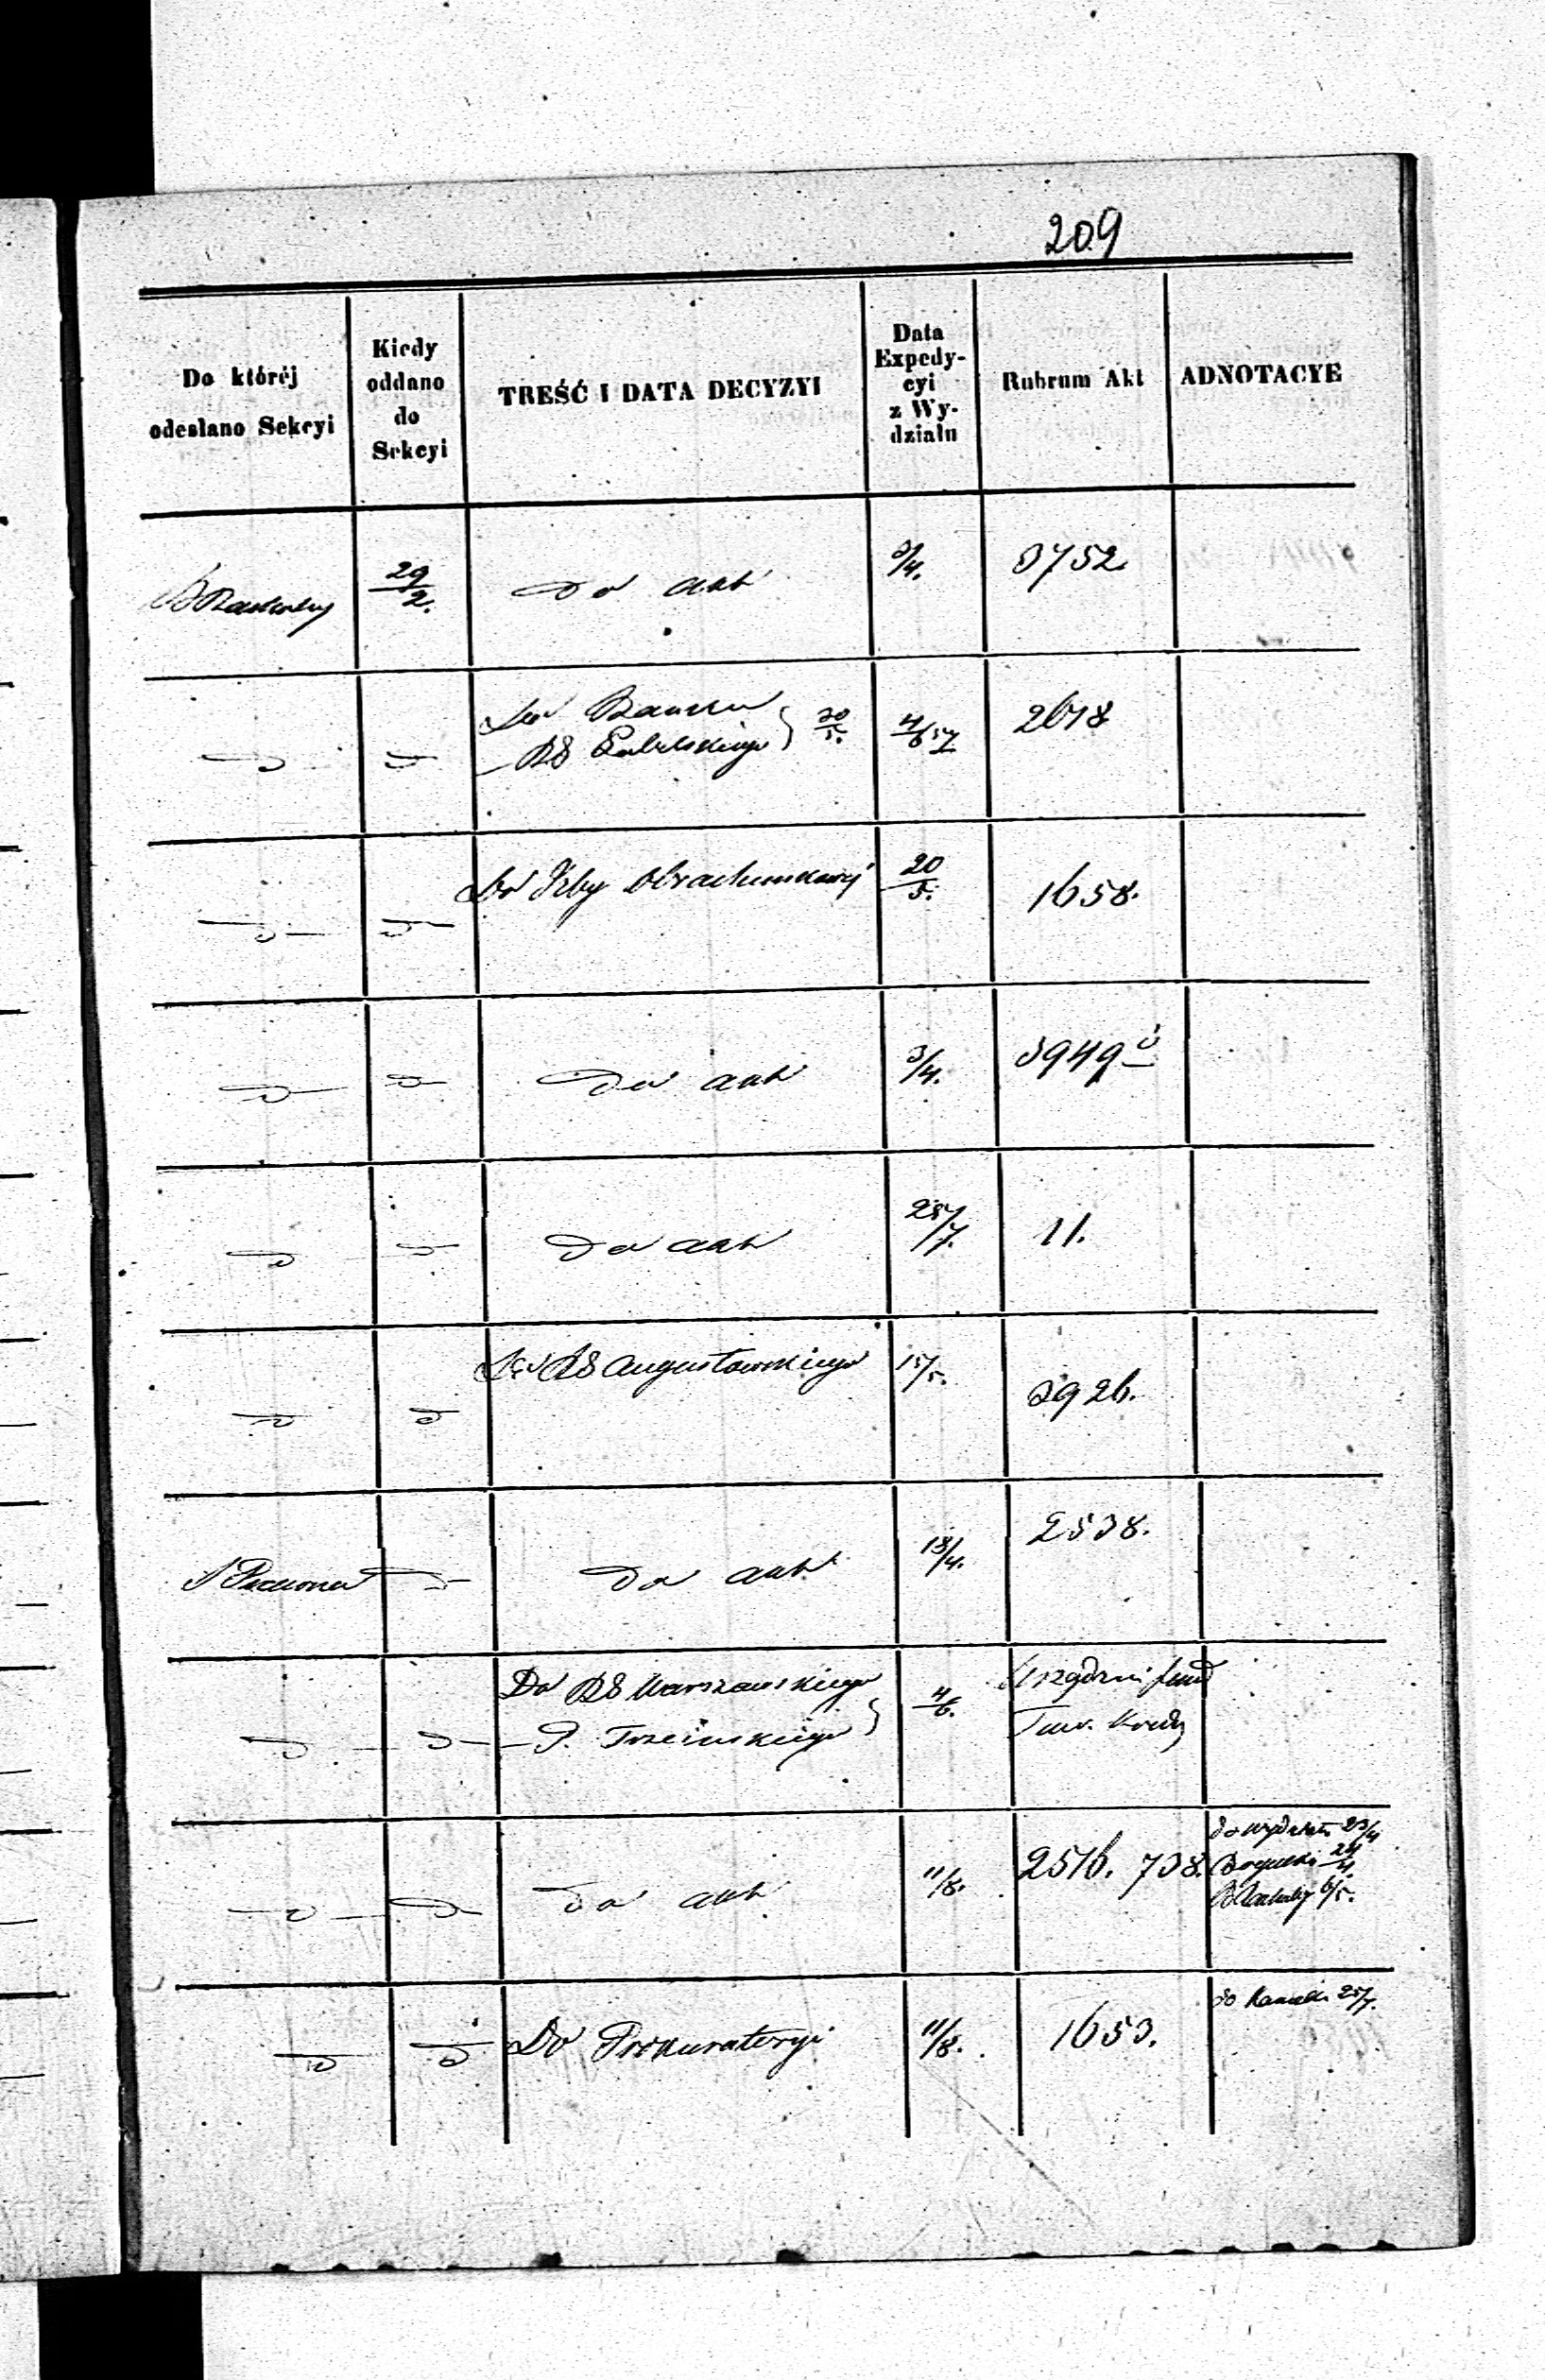 209
Do któréj odesłano Sekcyi
Kiedy oddano do Sekcyi
TREŚĆ I DATA DECYZYI
Data Expedycyi z Wydziału
Rubrum Akt
ADNOTACYE
29/2. do akt 3/4. 3752.
Do Banku
RG Lubelskiego } 30/5. 4/6 57 2678
Do Izby Obrachunkowej 20/5. 1658.
do akt 3/4. 3949
do akt 25/7. 11.
Do RG Augustowskiego 15/5. 3926.
do akt 18/4. 2538.
Do RG Warszawskiego
P. Trzcinskiego } 4/6. Urzędnicy
Tow. Kredy
do akt 11/8. 2516. 738.
do wydziału 23/4
24/4.
6/5.
Do Prokuratoryi 11/8. 1653.
do 25/7.